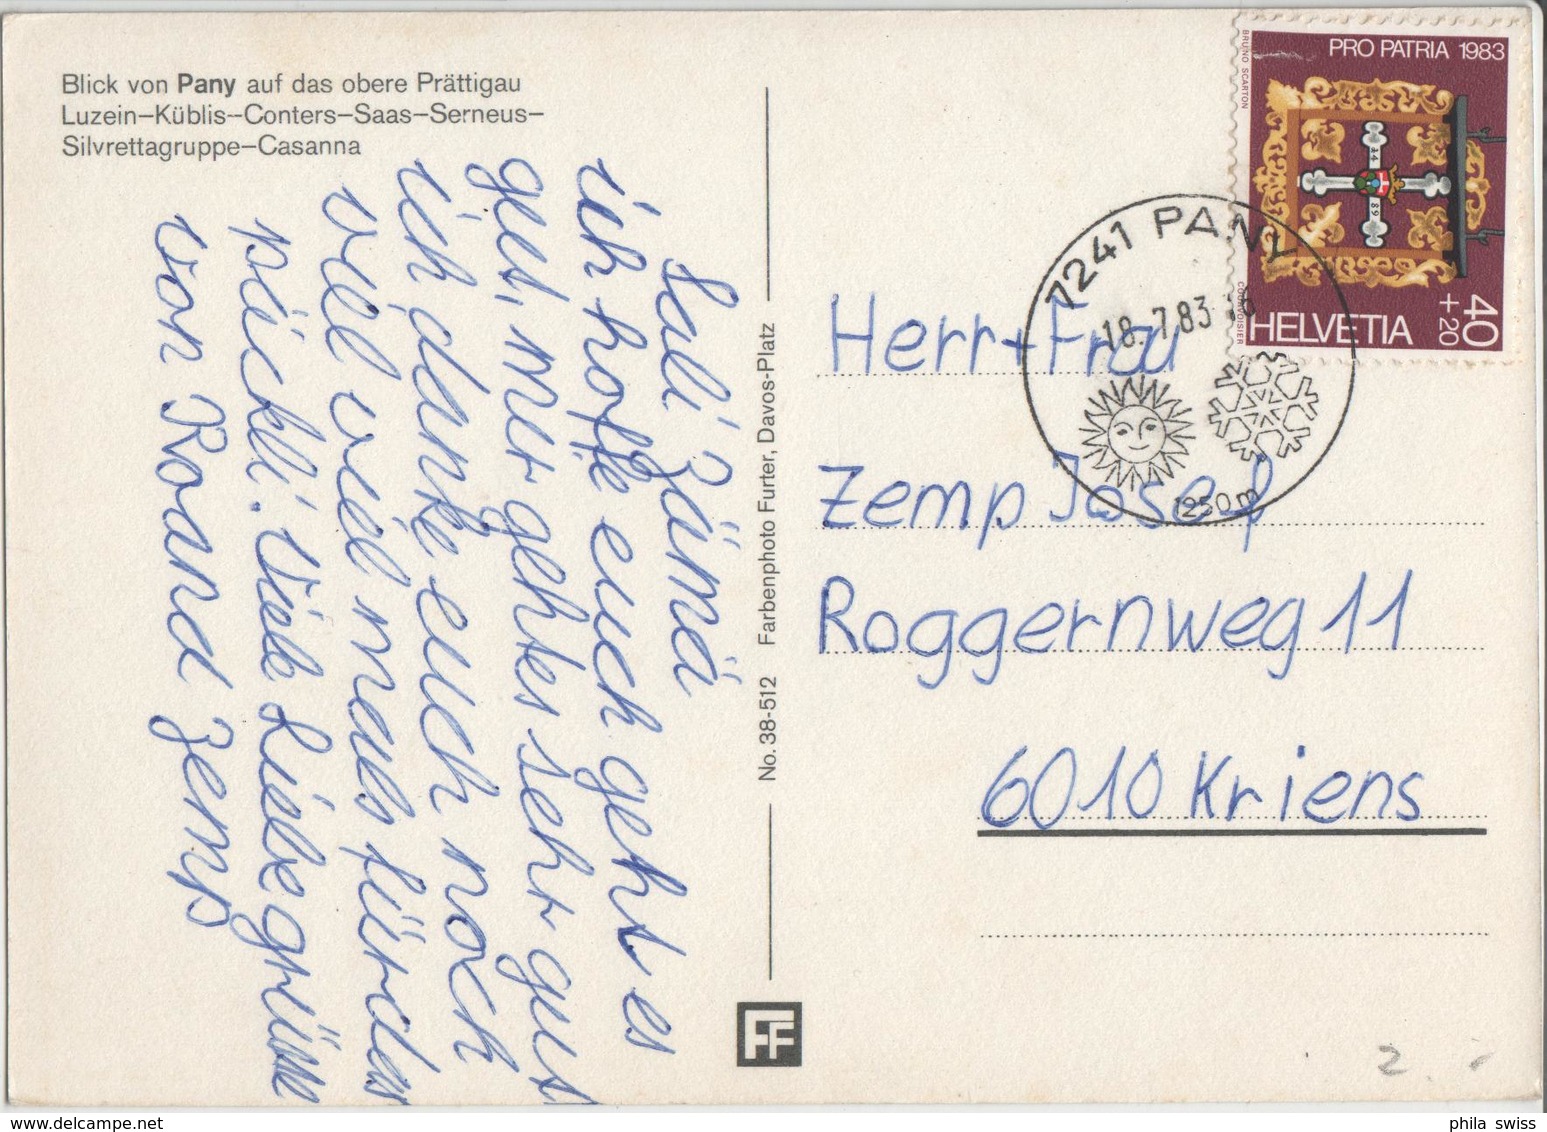 Blick von Pany auf das obere Prättigau
Luzein–Küblis–Conters–Saas–Serneus–
Silvrettagruppe–Casanna
Sali Zämä
ich hoffe euch geht es
gut, mir geht es sehr gut
ich danke euch noch
viel viel mals für das
päckli. Viele Liebe grüsse
von Roand Zemp
No. 38-512 Farbenphoto Furter, Davos-Platz
FF
PRO PATRIA 1983
BRUNO SCARTON
COURVOISIER
1489
HELVETIA
40
+20
7241 PANY
18.7.83
1250 m
Herr + Frau
Zemp Josef
Roggernweg 11
6010 Kriens
2.-
phila swiss